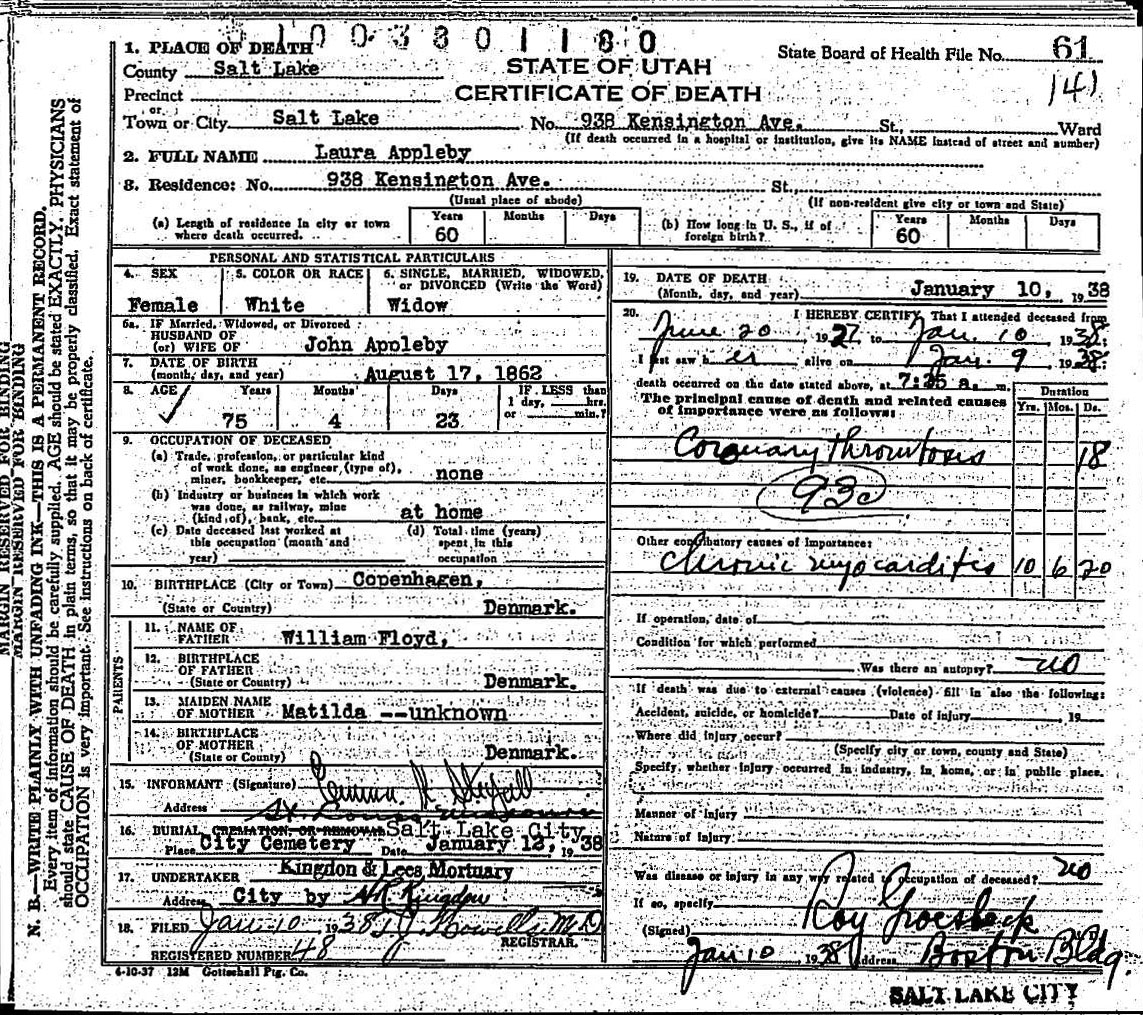 5 1 0 0 3 8 0 1 1 8 0
1. PLACE OF DEATH
County Salt Lake
STATE OF UTAH
State Board of Health File No. 61
141
Precinct
CERTIFICATE OF DEATH
or
Town or City Salt Lake No. 938 Kensington Ave. St., Ward
(If death occurred in a hospital or institution, give its NAME instead of street and number)
2. FULL NAME Laura Appleby
3. Residence: No. 938 Kensington Ave. St.
(Usual place of abode) (If non-resident give city or town and State)
(a) Length of residence in city or town where death occurred. Years 60 Months Days
(b) How long in U. S., if of foreign birth? Years 60 Months Days
PERSONAL AND STATISTICAL PARTICULARS
4. SEX Female
5. COLOR OR RACE White
6. SINGLE, MARRIED, WIDOWED, or DIVORCED (Write the Word) Widow
6a. IF Married, Widowed, or Divorced
HUSBAND OF
(or) WIFE OF John Appleby
7. DATE OF BIRTH
(month, day, and year) August 17, 1862
8. AGE Years 75 Months 4 Days 23 IF LESS than 1 day, hrs. or min.?
9. OCCUPATION OF DECEASED
(a) Trade, profession, or particular kind of work done, as engineer, (type of), miner, bookkeeper, etc. none
(b) Industry or business in which work was done, as railway, mine (kind of), bank, etc. at home
(c) Date deceased last worked at this occupation (month and year)
(d) Total time (years) spent in this occupation
10. BIRTHPLACE (City or Town) Copenhagen,
(State or Country) Denmark.
PARENTS
11. NAME OF FATHER William Floyd,
12. BIRTHPLACE OF FATHER
(State or Country) Denmark.
13. MAIDEN NAME OF MOTHER Matilda --unknown
14. BIRTHPLACE OF MOTHER
(State or County) Denmark.
15. INFORMANT (Signature) Emma K
Address St. Louis Missouri
16. BURIAL, CREMATION, OR REMOVAL Salt Lake City
Place City Cemetery Date January 12, 1938
17. UNDERTAKER Kingdon & Lees Mortuary
Address City by Kingdon
18. FILED Jan 10 1938 M.D.
REGISTRAR.
REGISTERED NUMBER 48
4-10-37 12M Gottschall Ptg. Co.
19. DATE OF DEATH
(Month, day, and year) January 10, 1938
20. I HEREBY CERTIFY, That I attended deceased from
June 20 1927 to Jan. 10 1938;
I last saw h er alive on Jan. 9 1938;
death occurred on the date stated above, at 7:35 a. m.
The principal cause of death and related causes of importance were as follows:
Duration
Yrs. Mos. Ds.
Coronary thrombosis 18
93c
Other contributory causes of importance:
Chronic myocarditis 10 6 20
If operation, date of
Condition for which performed
Was there an autopsy? no
If death was due to external causes (violence) fill in also the following:
Accident, suicide, or homicide? Date of injury 19
Where did injury occur?
(Specify city or town, county and State)
Specify whether injury occurred in industry, in home, or in public place.
Manner of injury
Nature of Injury
Was disease or injury in any way related to occupation of deceased? no
If so, specify
(Signed) Roy Groesbeck
Jan 10 1938 Address Boston Bldg.
SALT LAKE CITY
MARGIN RESERVED FOR BINDING
MARGIN RESERVED FOR BINDING
N. B.—WRITE PLAINLY WITH UNFADING INK—THIS IS A PERMANENT RECORD.
Every item of information should be carefully supplied. AGE should be stated EXACTLY. PHYSICIANS
should state CAUSE OF DEATH in plain terms, so that it may be properly classified. Exact statement of
OCCUPATION is very important. See instructions on back of certificate.